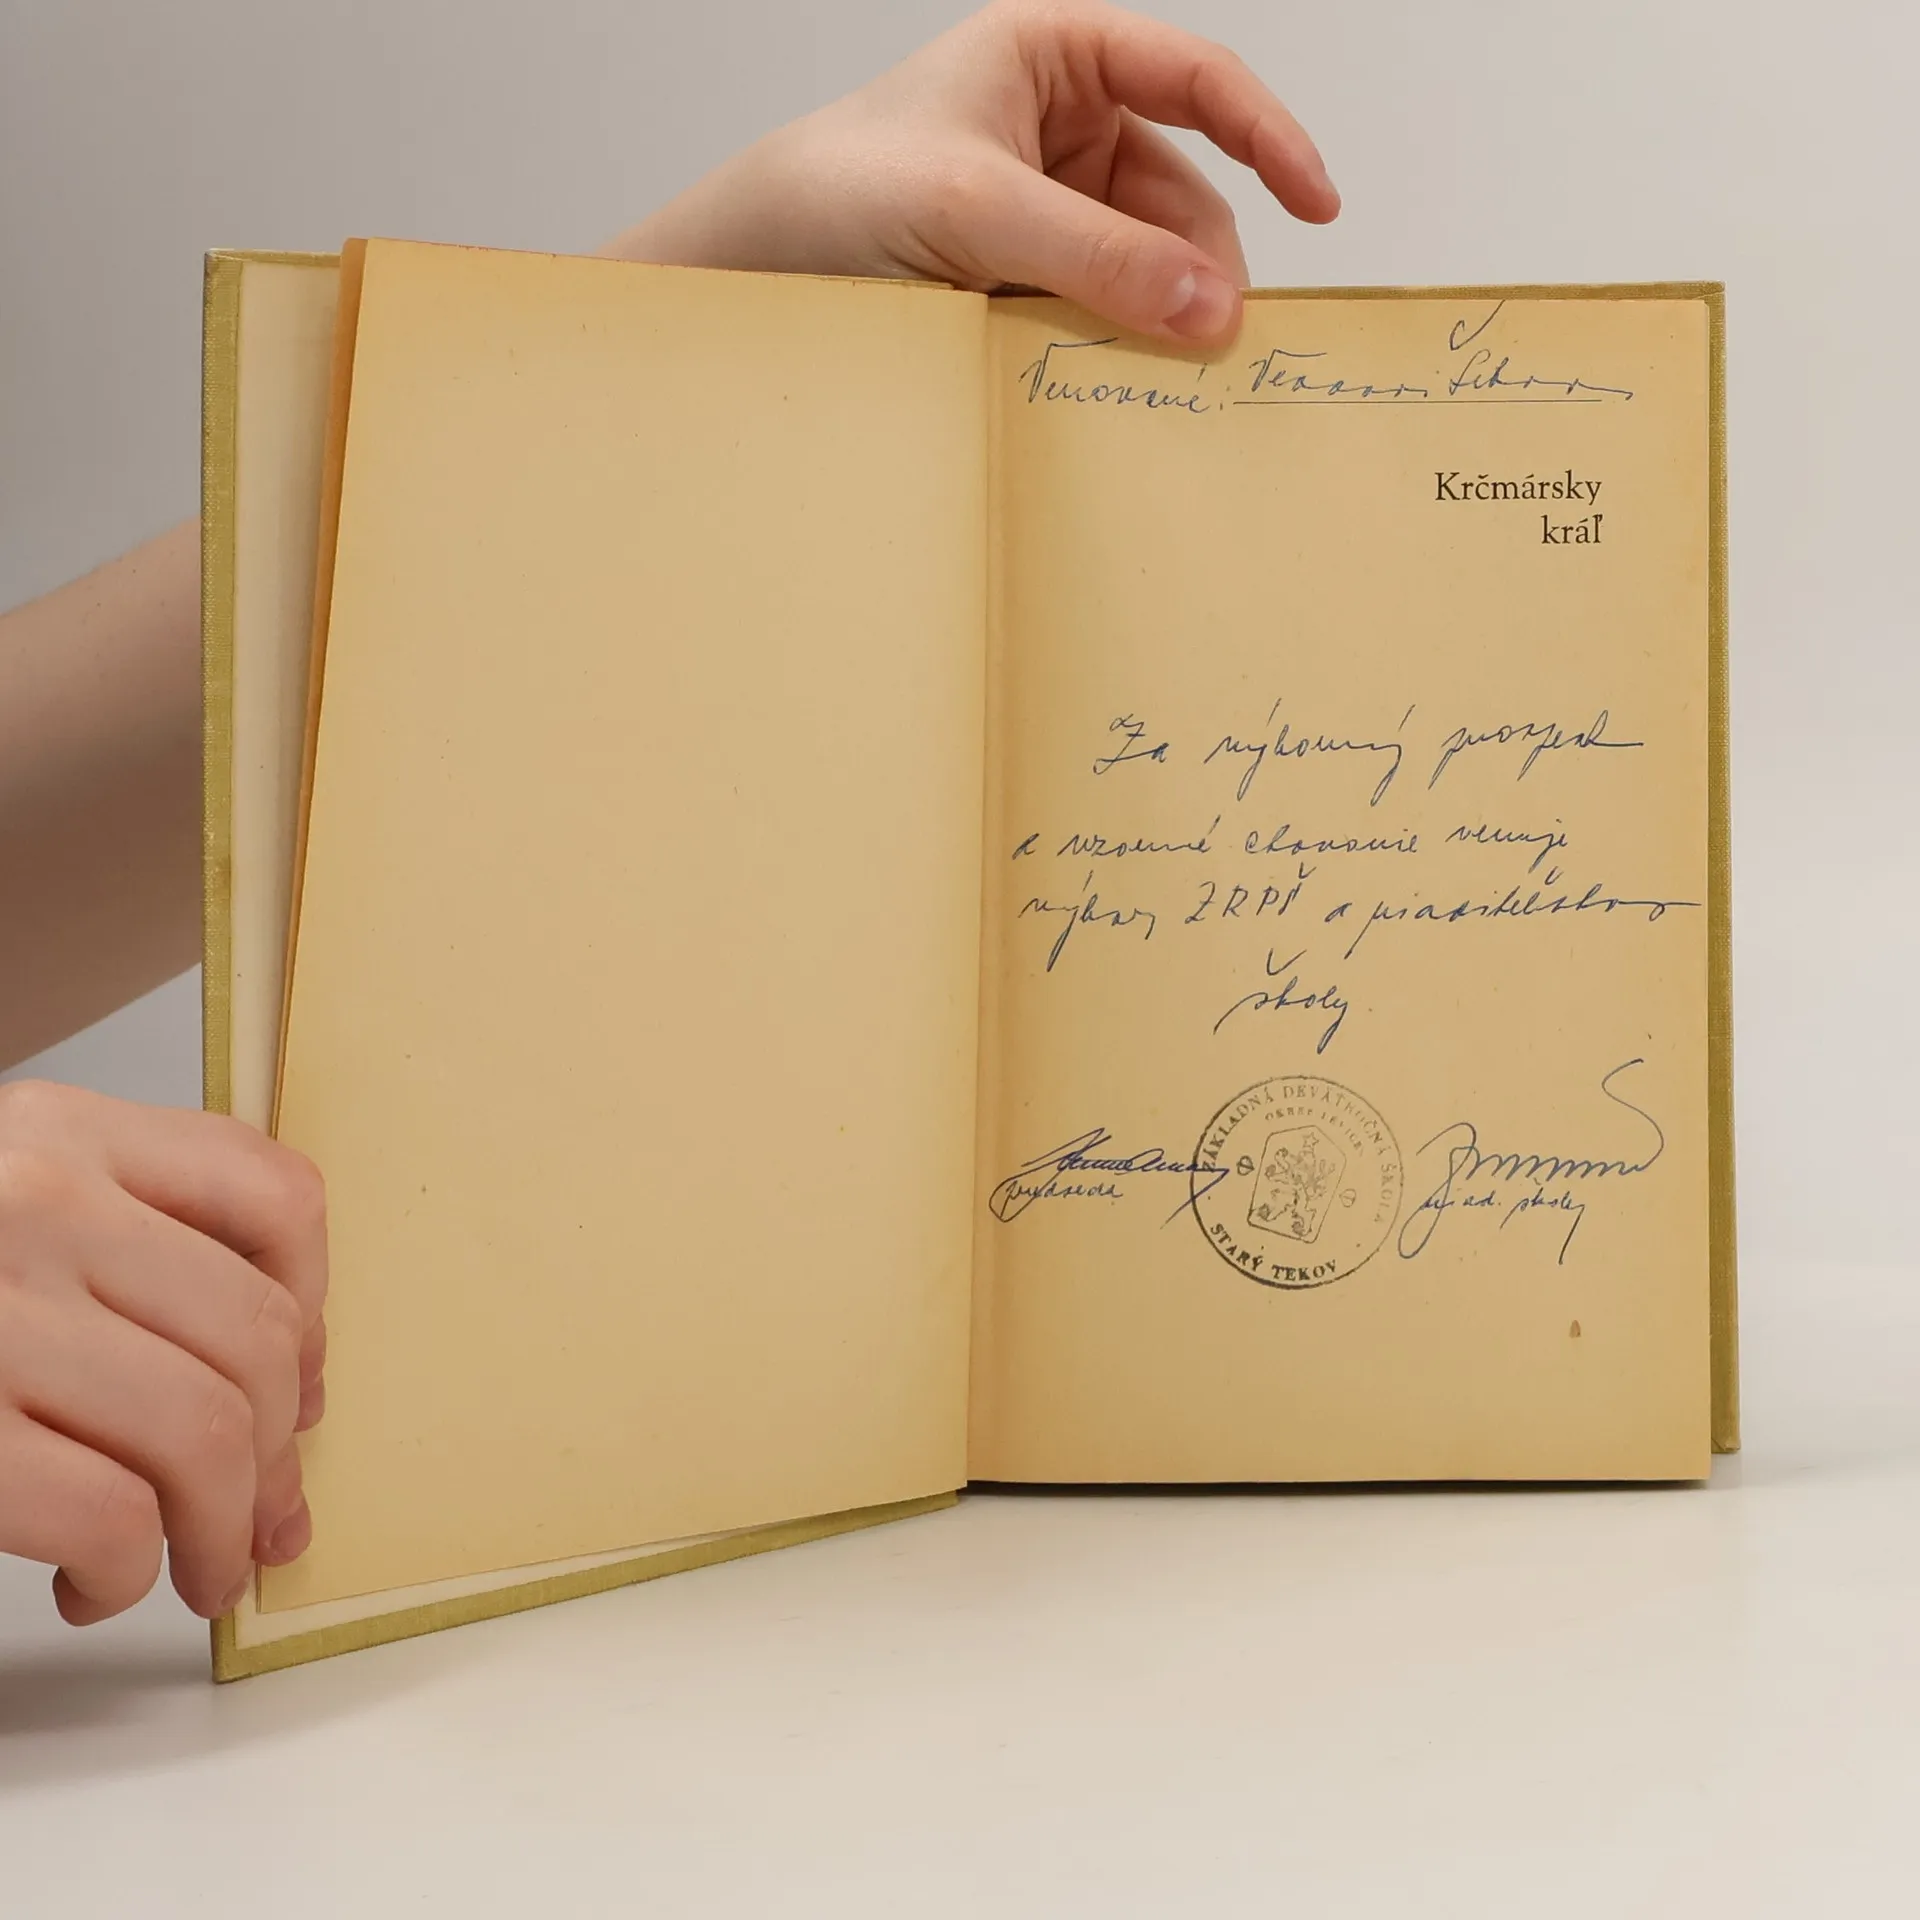 Venované:
Krčmársky
kráľ
Za výborný prospech
a vzorné chovanie venuje
výbor ZRPŠ a riaditeľstvo
školy
ZÁKLADNÁ DEVÄŤROČNÁ ŠKOLA
OKRES LEVICE
STARÝ TEKOV
predseda
riad. školy